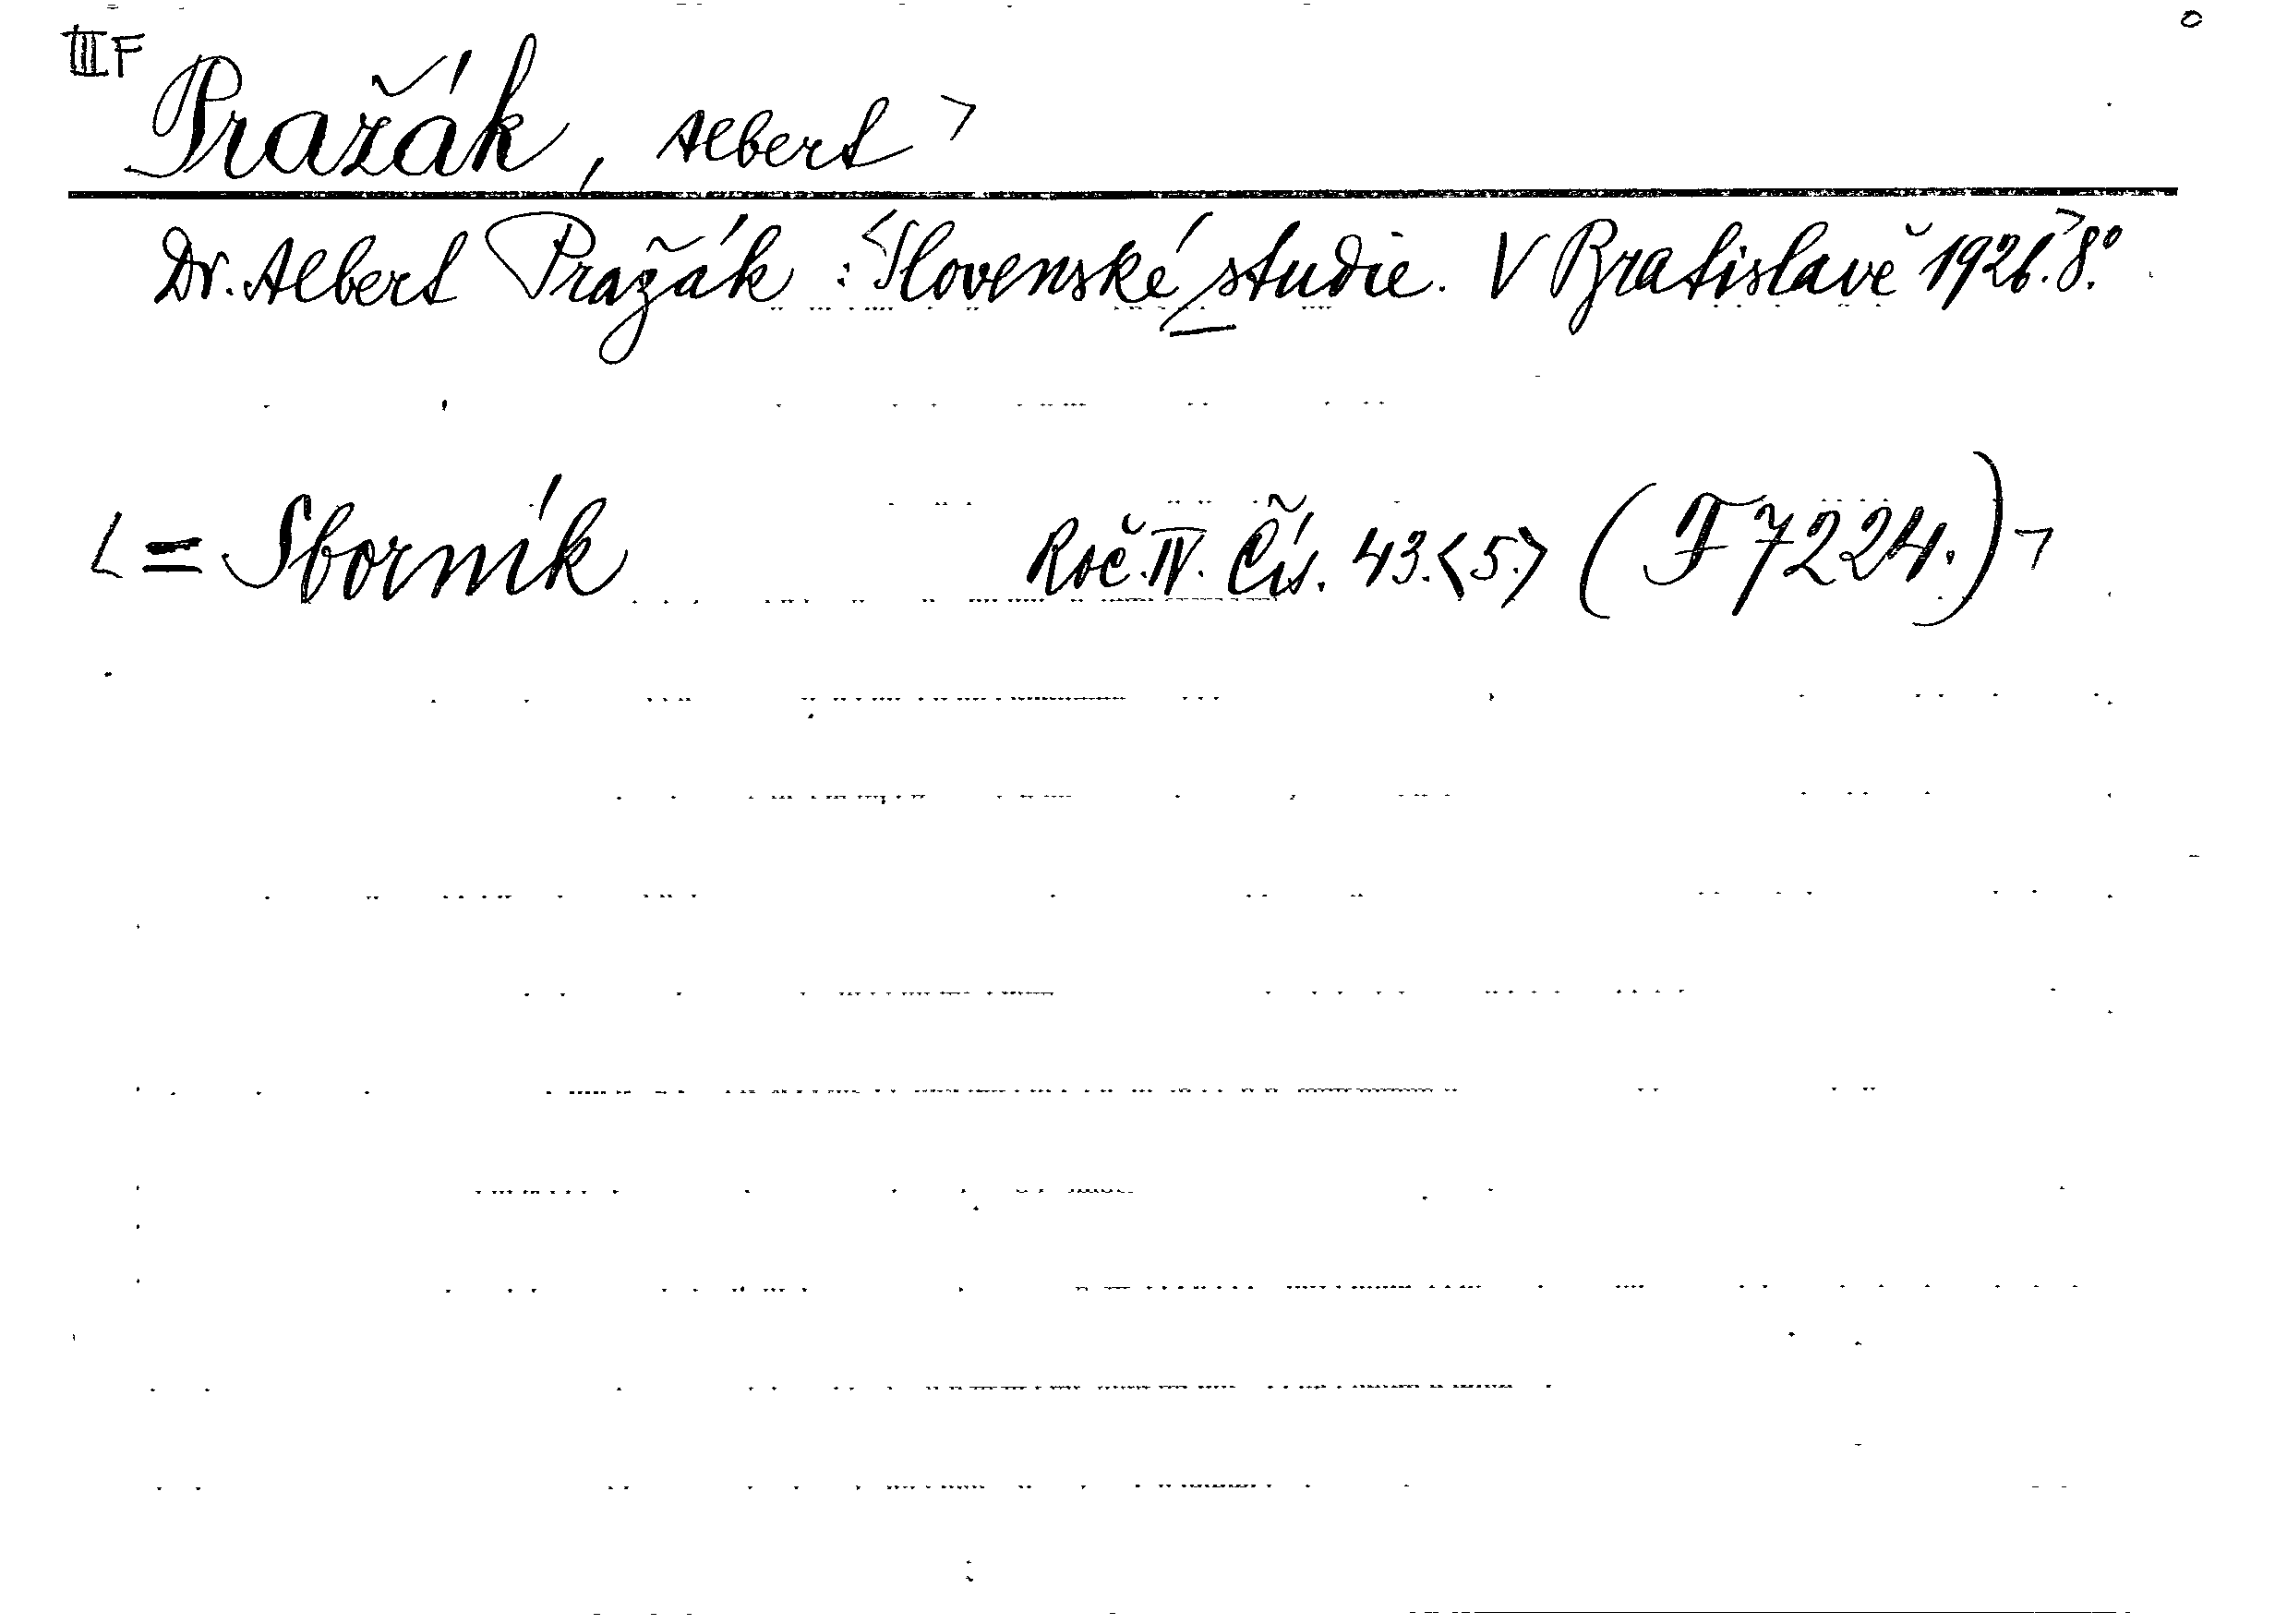 III F
Pražák, Albert
Dr. Albert Pražák: Slovenské studie. V Bratislavě 1926. 8°.
= Sborník Roč. IV. Čís. 43. <5.> (F 7224.)